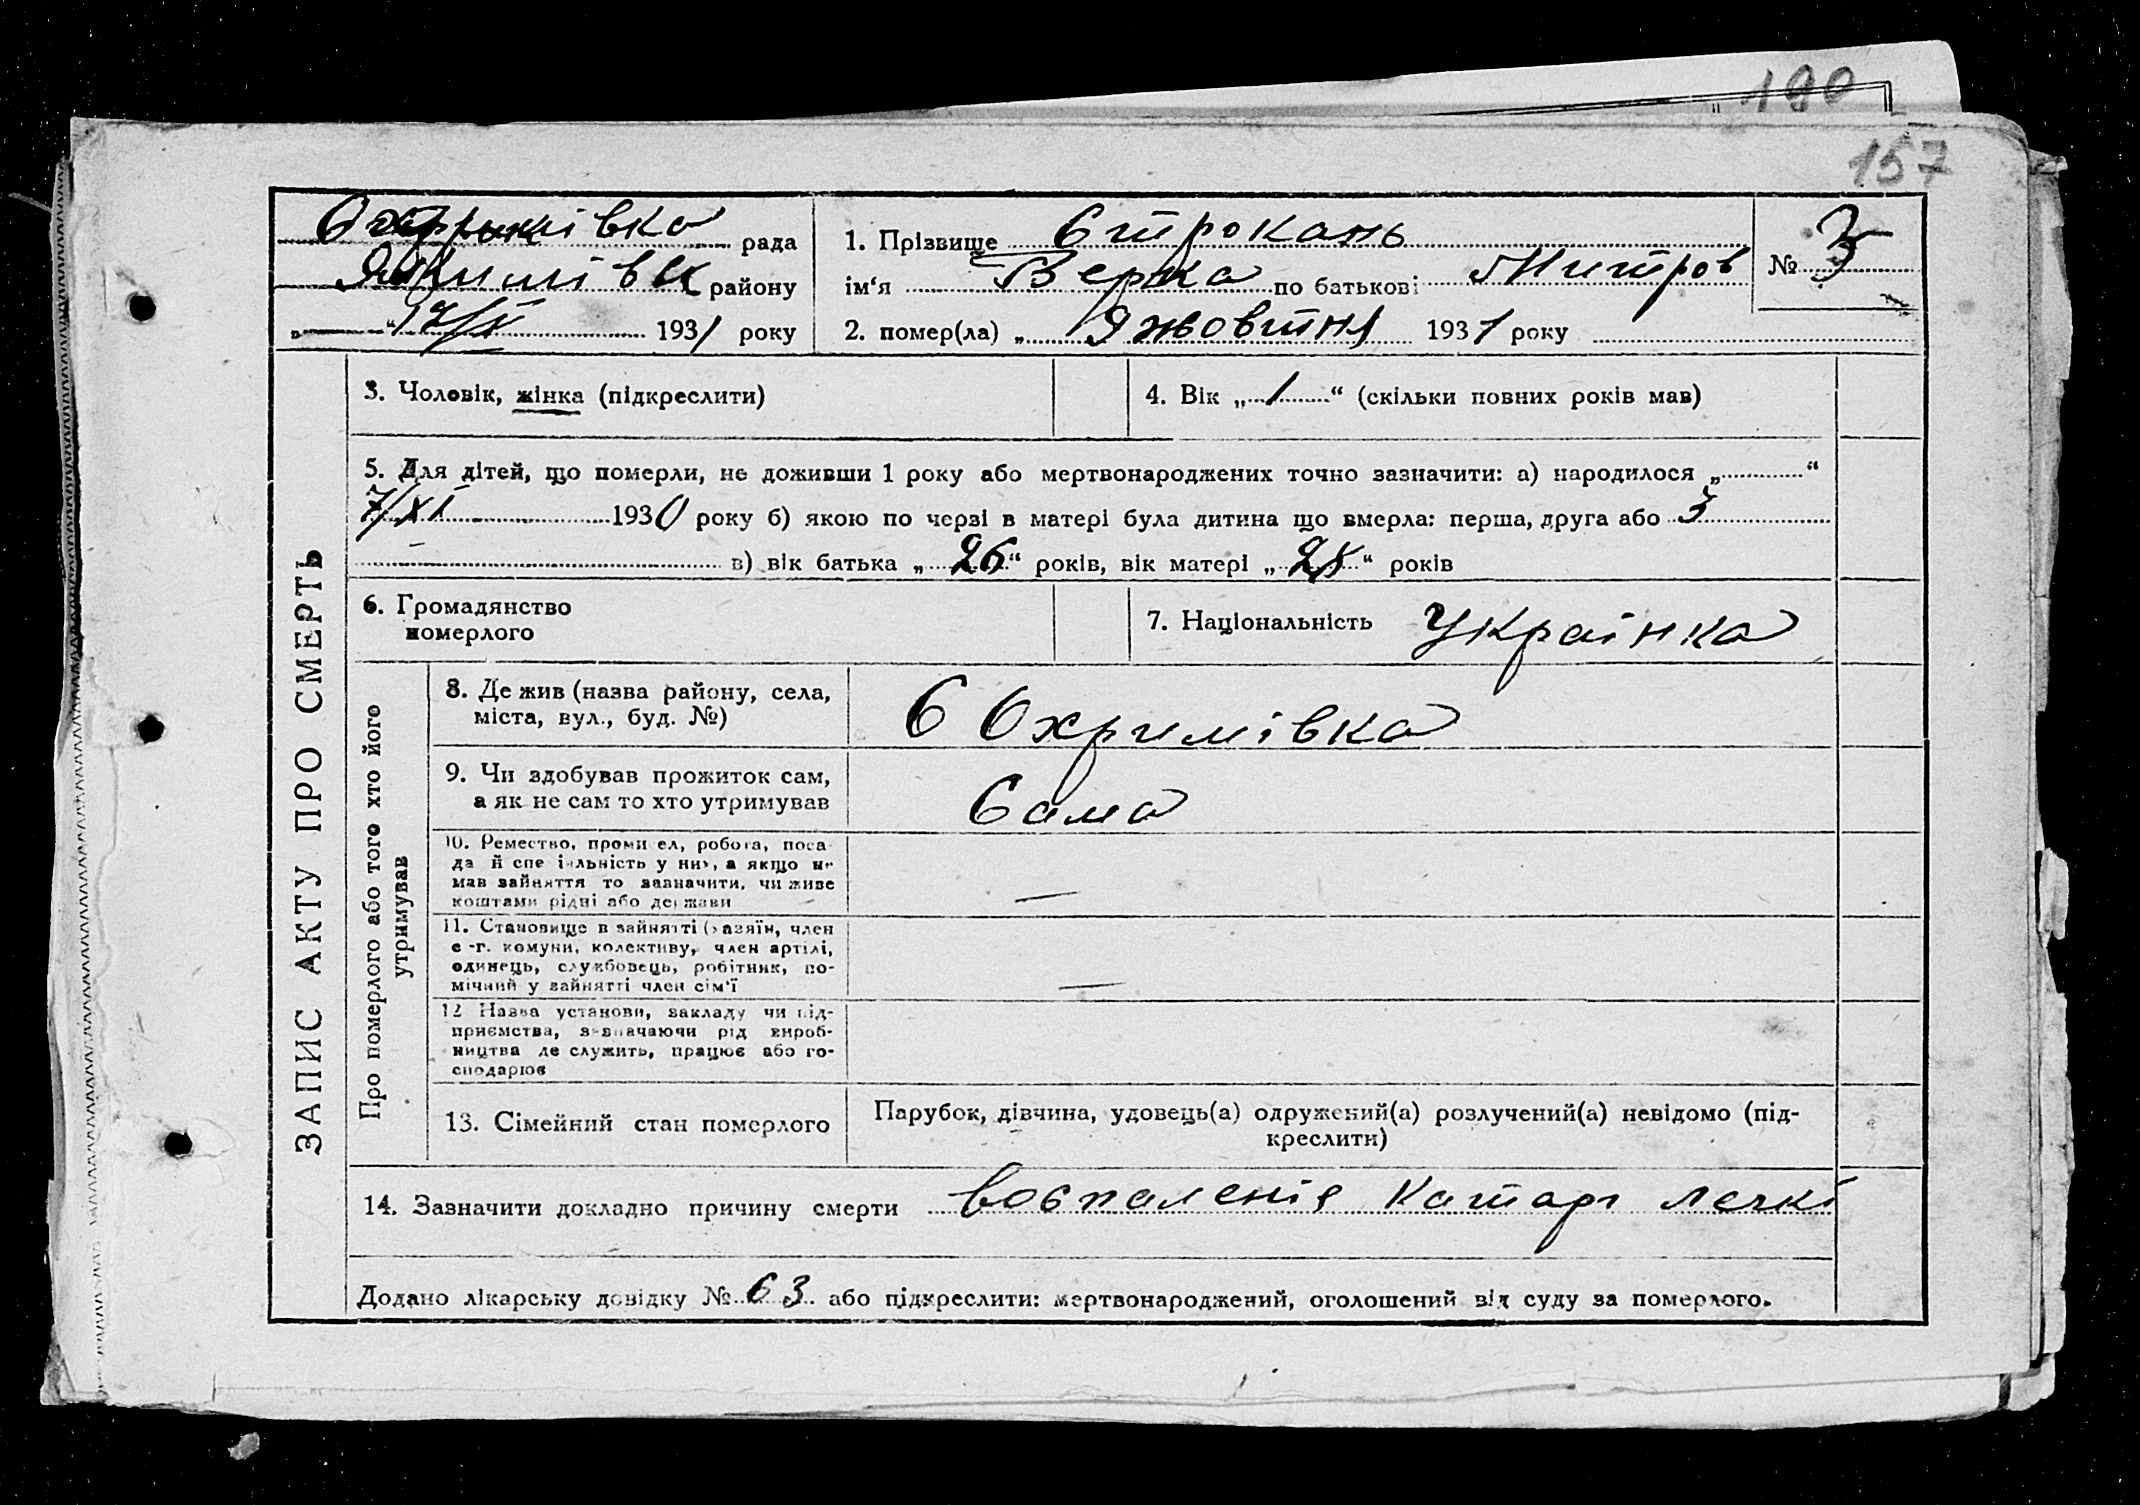 190
157
Охримівка рада
Якимівк району
„ “ 12/X 1931 року
1. Прізвище Строкань
ім‘я Верка по батькові Митров
2. помер(ла) „ 9 жовтня 1931 року
№ 3
ЗАПИС АКТУ ПРО СМЕРТЬ
3. Чоловік, жінка (підкреслити)
4. Вік „ 1 “ (скільки повних років мав)
5. Для дітей, що померли, не доживши 1 року або мертвонароджених точно зазначити: а) народилося „ “
7/XI 1930 року б) якою по черзі в матері була дитина що вмерла: перша, друга або 3
в) вік батька „ 26 “ років, вік матері „ “ років
6. Громадянство
померлого
7. Національність Украінка
Про померлого або того хто його
утримував
8. Де жив (назва району, села,
міста, вул., буд. №)
С Охримівка
9. Чи здобував прожиток сам,
а як не сам то хто утримував
Сама
10. Ремество, проми ел, робота, поса-
да й спе іяльність у них, а якщо не
мав зайняття то зазначити, чи живе
коштами рідні або держави
—
11. Становище в зайнятті (хазяїн, член
с -г. комуни, колективу, член артілі,
одинець, службовець, робітник, по-
мічний у зайнятті член сім‘ї
—
12 Назва установи, закладу чи під-
приємства, зазначаючи рід вироб-
ництва де служить, працює або го-
сподарює
13. Сімейний стан померлого
Парубок, дівчина, удовець(а) одружений(а) розлучений(а) невідомо (під-
креслити)
14. Зазначити докладно причину смерти воспаленія Катар легкі
Додано лікарську довідку № 63 або підкреслити: мертвонароджений, оголошений від суду за померлого.